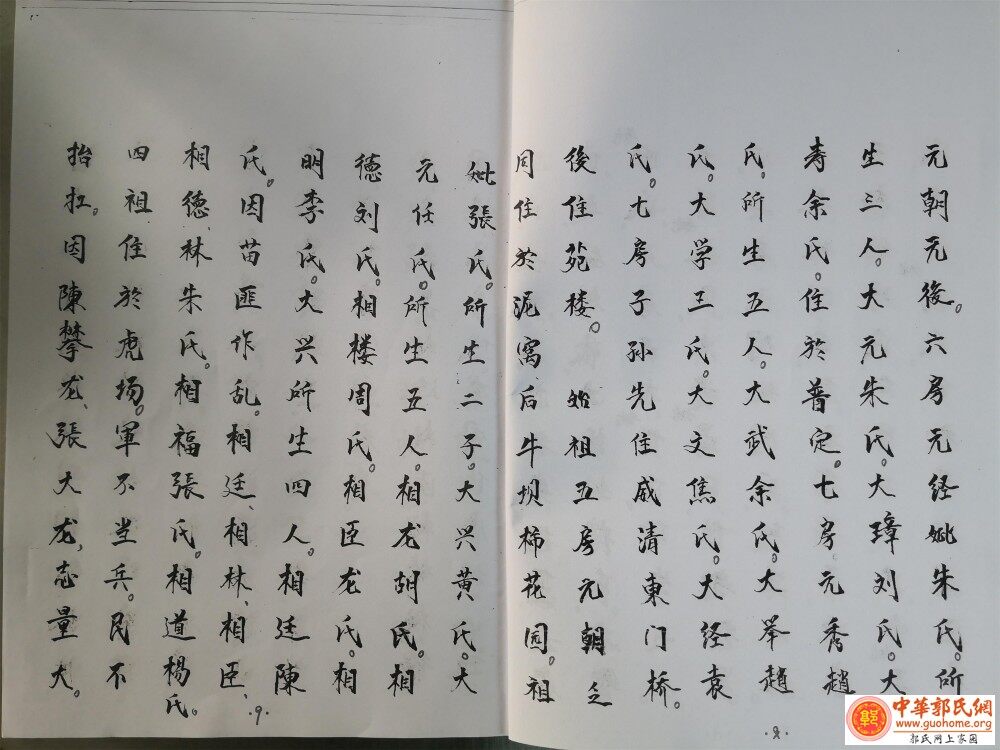 元朝元後。六房元经妣朱氏。所
生三人。大元朱氏。大璋刘氏。大
寿余氏。住於普定。七房元秀趙
氏。所生五人。大武余氏。大举趙
氏。大学三氏。大文焦氏。大经袁
氏。七房子孙先住威清東门桥。
後住苑楼。始祖五房元朝之
同住於泥窩后牛坝柿花园。祖
妣張氏。所生二子。大兴黄氏。大
元任氏。所生五人。相龙胡氏。相
德刘氏。相楼周氏。相臣龙氏。相
明李氏。大兴所生四人。相廷陳
氏。因苗匪作乱。相廷、相林、相臣、
相德、林朱氏。相福張氏。相道楊氏。
四祖住於虎场。軍不当兵。民不
抬扛。因陳攀龙、張大龙、志量大。
·9·
·8·
中華郭氏網
www.guohome.org
郭氏网上家园